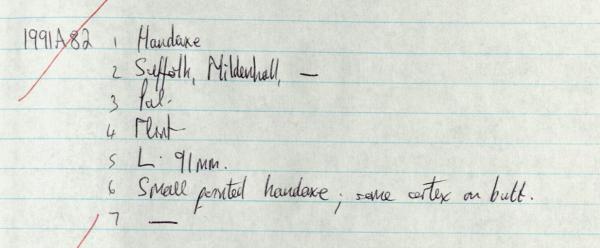 1991A82 1 Handaxe
2 Suffolk, Mildenhall, —
3 Pal.
4 Flint
5 L. 91mm.
6 Small pointed handaxe; some cortex on butt.
7 —